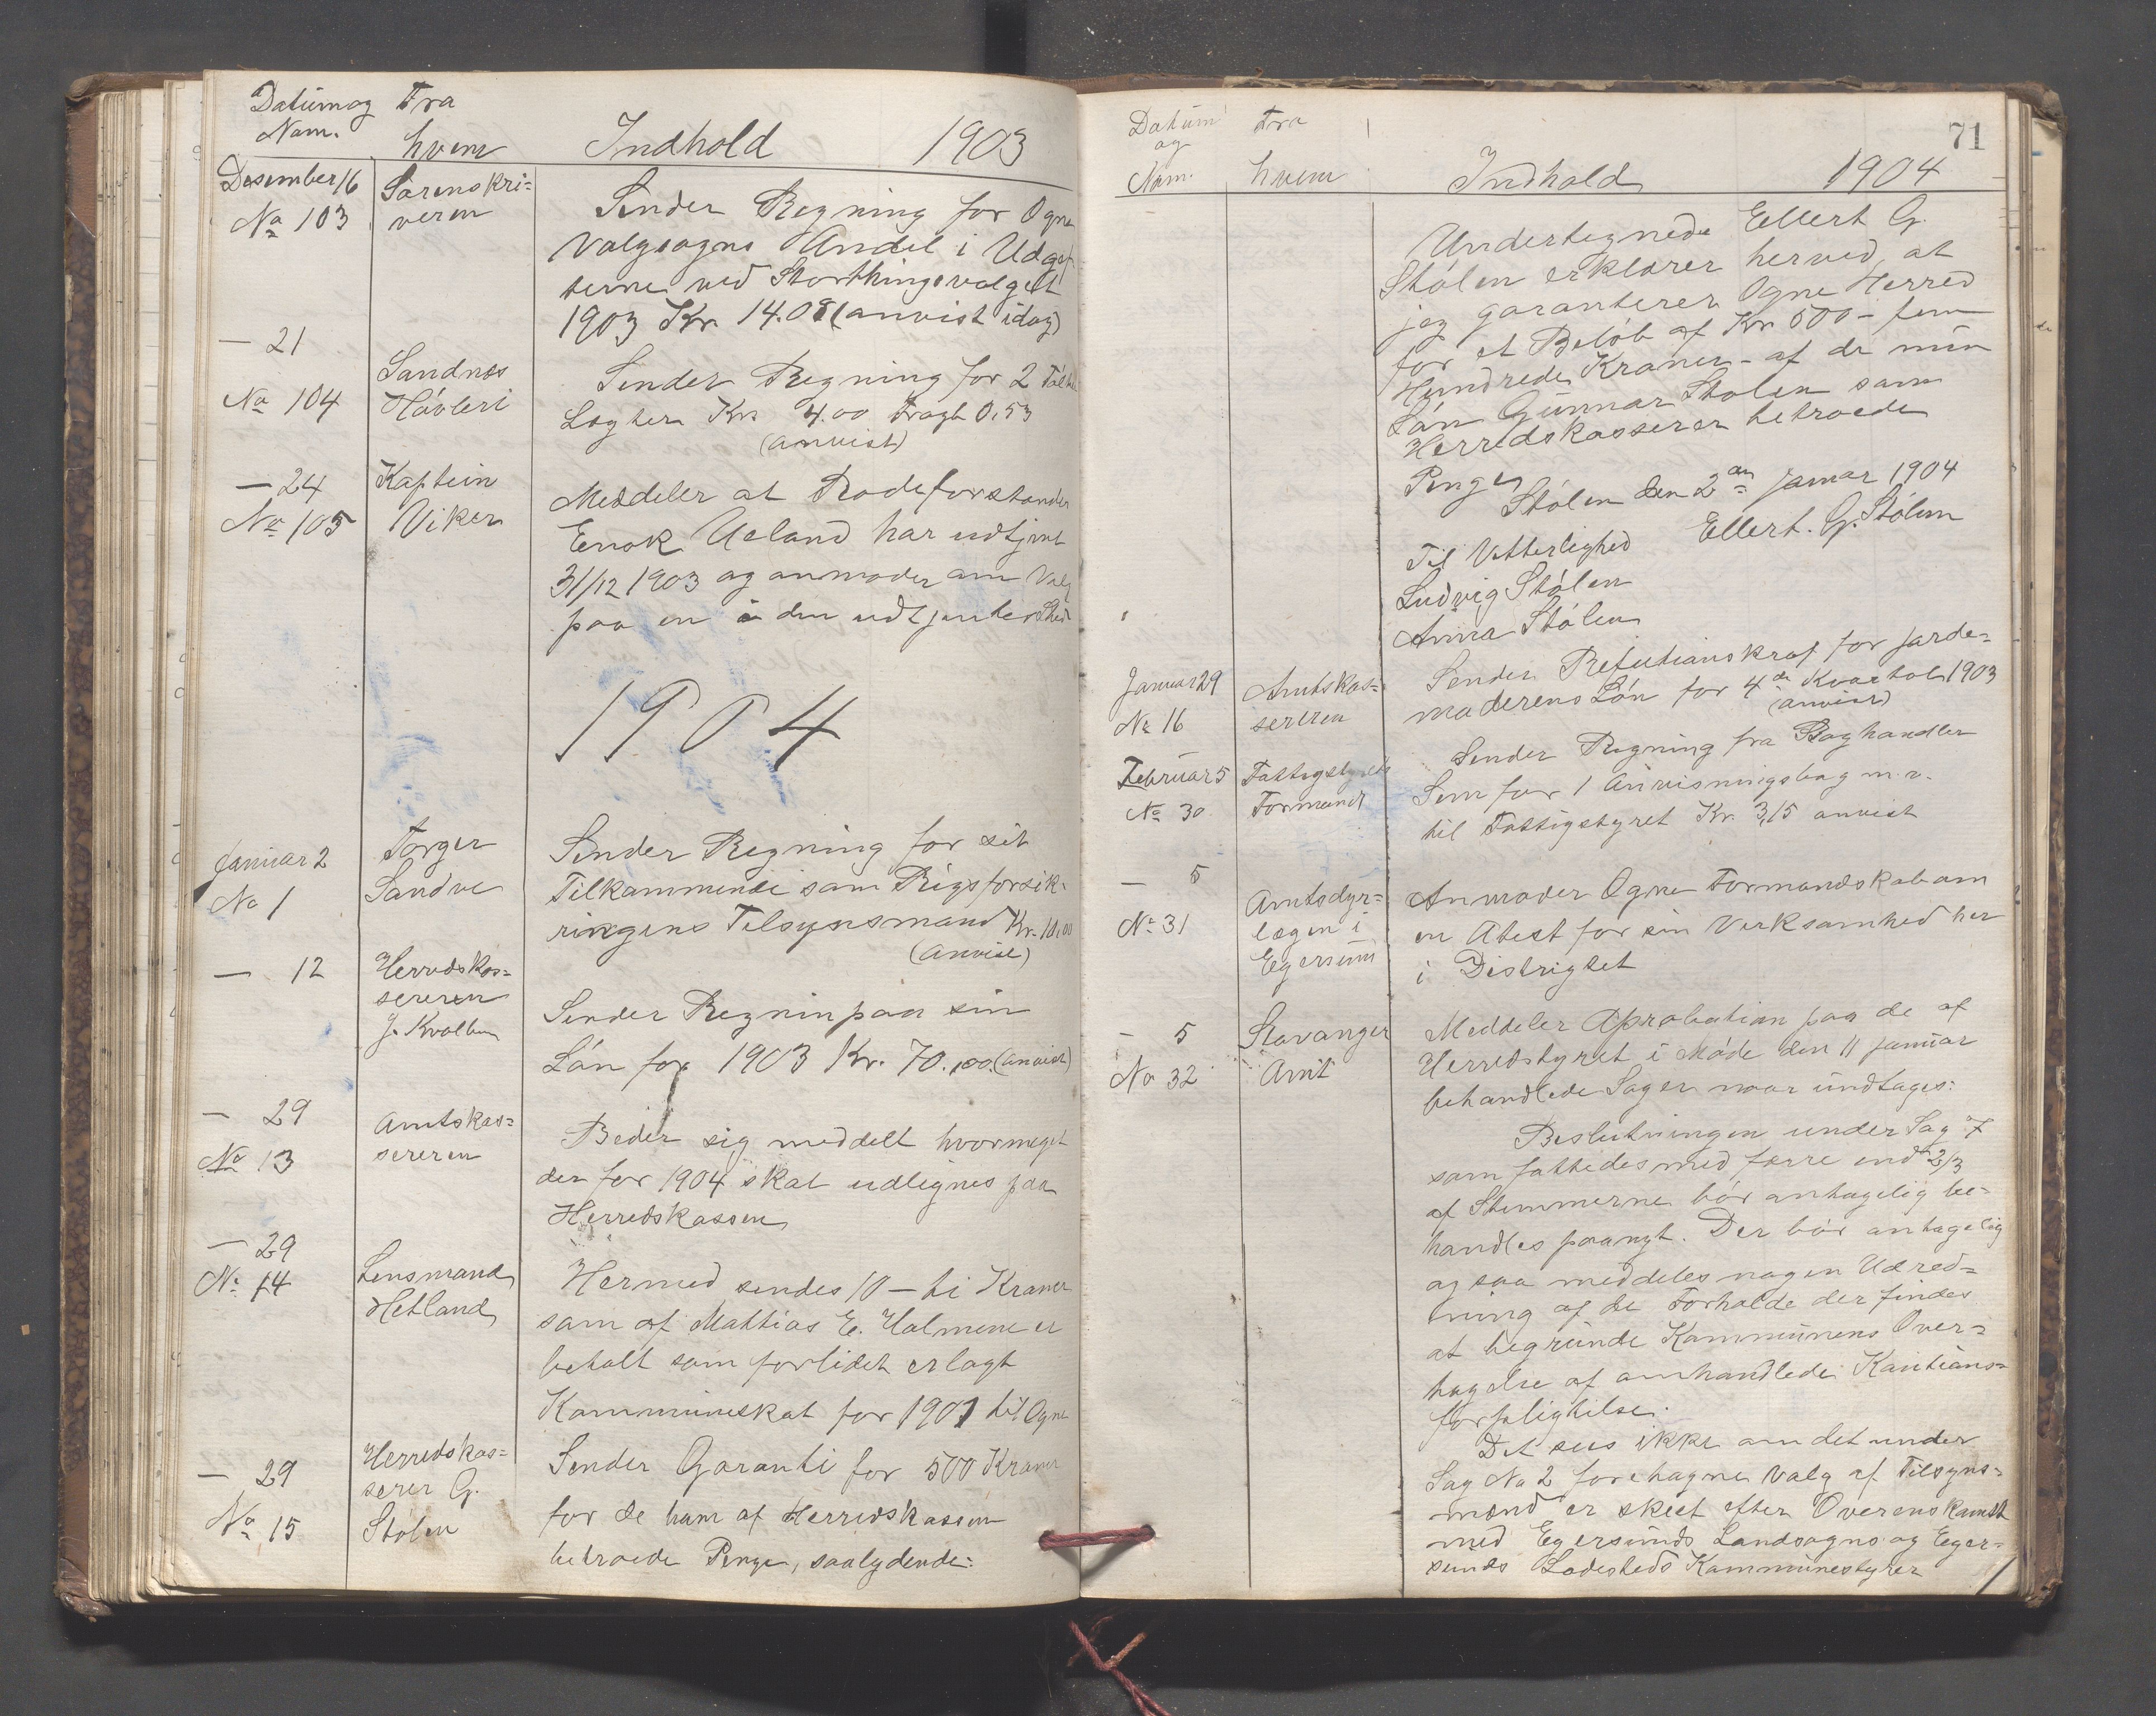 Datum og Fra
Num. hvem Indhold 1903
Desember 16 Sorenskri=
No 103 veren
Sender Regning for Ogne
Valgsogns Andel i Udgif
terne ved Storthingsvalget
1903 Kr. 14.08 (anvist idag)
— 21
No 104
Sandnes
Høvleri
Sender Regning for 2
Legter Kr. 4.00 Fragt 0.53
(anvist)
— 24 Kaptein
No 105 Viker
Meddeler at Rodeforstander
Enok Ueland har udtjent
31/12 1903 og anmoder om Valg
paa en i den udtjentes Sted
1904
Januar 2 Torger
No 1 Sandve
Sender Regning for sit
Tilkommende som Rigsforsik-
ringens Tilsynsmand Kr. 10.00
(Anvist)
— 12 Herredskas=
sereren
J. Kvalben
Sender Regnin paa sin
Løn for 1903 Kr. 70.00 (anvist)
— 29 Amtskas=
No 13 sereren
Beder sig meddelt hvormeget
der for 1904 skal udlignes paa
Herredskassen
— 29
No 14 Lensmand
Hetland
Hermed sendes 10 — ti Kroner
som af Mathias E. Holmene er
betalt som forlidet erlagt
Kommuneskat for 1901 til Ogne
— 29 Herredskas=
No 15 serer G.
Stølen
Sender Garanti for 500 Kroner
for de ham af Herredskassen
betroede Penge, saalydende:
71
Datum Fra
og
Num. hvem Indhold 1904
Undertegnede Ellert G.
Stølen erklærer herved, at
jeg garanterer Ogne Herred
for et Beløb af Kr 500 - fem
Hundrede Kroner - af de min
Søn Gunnar Stølen som
Herredskasserer betroede
Penge
Stølen den 2den januar 1904
Ellert. G. Stølen
Til Vitterlighed
Ludvig Stølen
Anna Stølen
Januar 29 Amtskas=
No 16 sereren
Sender Refutionskraf for jorde=
moderens Løn for 4de Kvartal 1903
(anvist)
Februar 5 Fattigstyrets
No 30 Formand
Sender Regning fra Boghandler
Sem for 1 Anvisningsbog m.v.
til Fattigstyret Kr. 3,15 anvist
— 5
No 31
Amtsdyr=
lægen i
Egersund
Anmoder Ogne Formandskab om
en Atest for sin Virksamhed her
i Distrigtet
— 5 Stavanger
No 32 Amt
Meddeler Aprobation paa de af
Herredstyret i Møde den 11 januar
behandlede Sager naar undtages:
Beslutningen under Sag 7
som fattedes med færre end 2/3
af Stemmerne bør antagelig be=
handles paanyt. Der bør antagelig
ogsaa meddeles nogen Udred=
ning af de Forholde der findes
at begrunde Kommunens Over=
tagelse af omhandlede Kautions=
forpligtelse.
Det sees ikke om det under
Sag No 2 foretagne Valg af Tilsyns=
mænd er skeet efter Overenskomst
med Egersunds Landsogns og Eger=
sunds Ladesteds Kommunestyrer